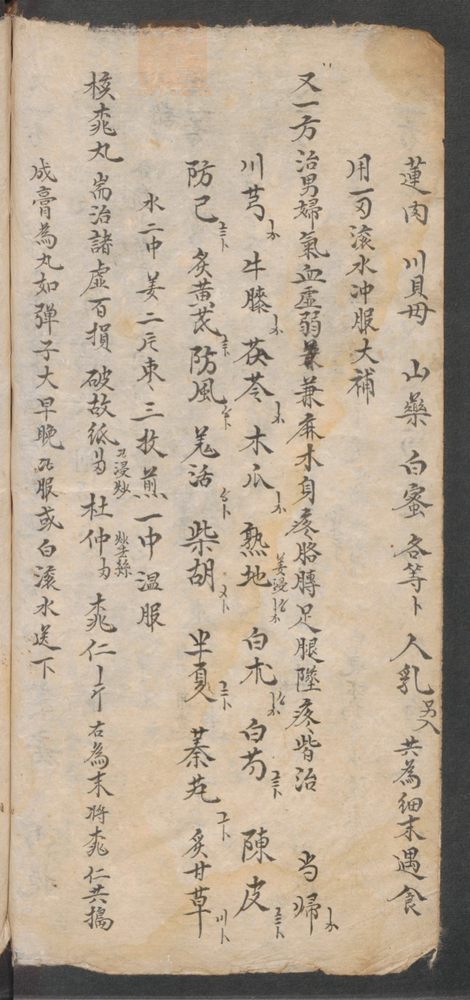 蓮肉 川貝母 山藥 白蜜 各等卜 人乳 另入 共為細末遇食
用一刃滚水冲服大補
又一方治男婦氣血虛弱兼麻木身疼胳膊足腿墜疼皆治 当歸
川芎 牛膝 茯苓 木瓜 熟地 姜浸 白朮 白芍 陳皮
防己 炙黄芪 防風 羌活 柴胡 半夏 蓁芄 炙甘草
水二中 姜二片枣三枚煎一中温服
核桃丸 耑治諸虛百損 破故纸 浸炒 杜仲 炒去絲 桃仁 右為末將桃仁共搗
成膏為丸如彈子大早晚服或白滚水送下